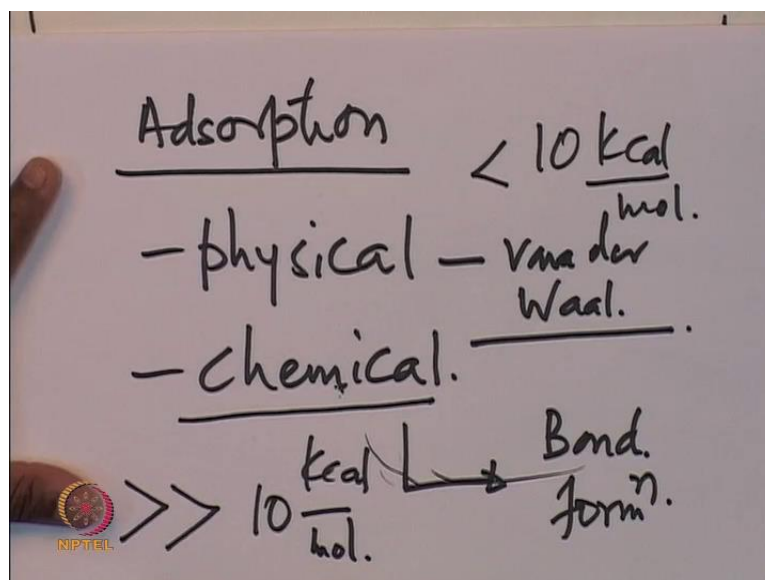 Adsorption
< 10 Kcal/mol.
- physical - Vander
Waal.
- chemical.
>> 10 Kcal/mol.
Bond.
formⁿ.
NPTEL